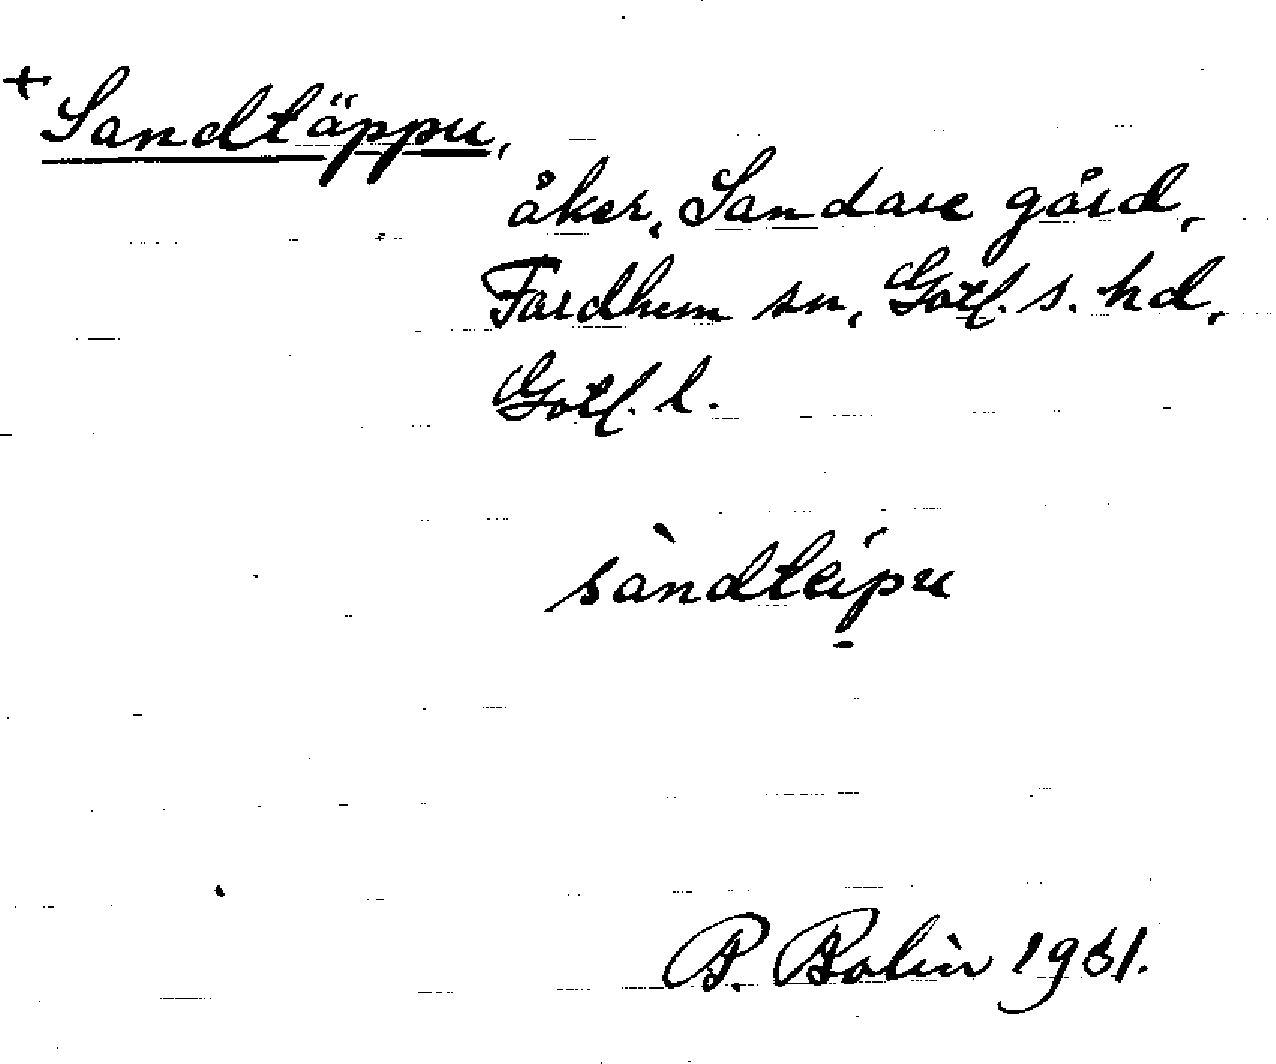 + Sandtäppu,
åker, Sandare gård,
Fardhem sn, Gotl. s. hd,
Gotl. l.
sàndtéipu
P. Bolin 1961.